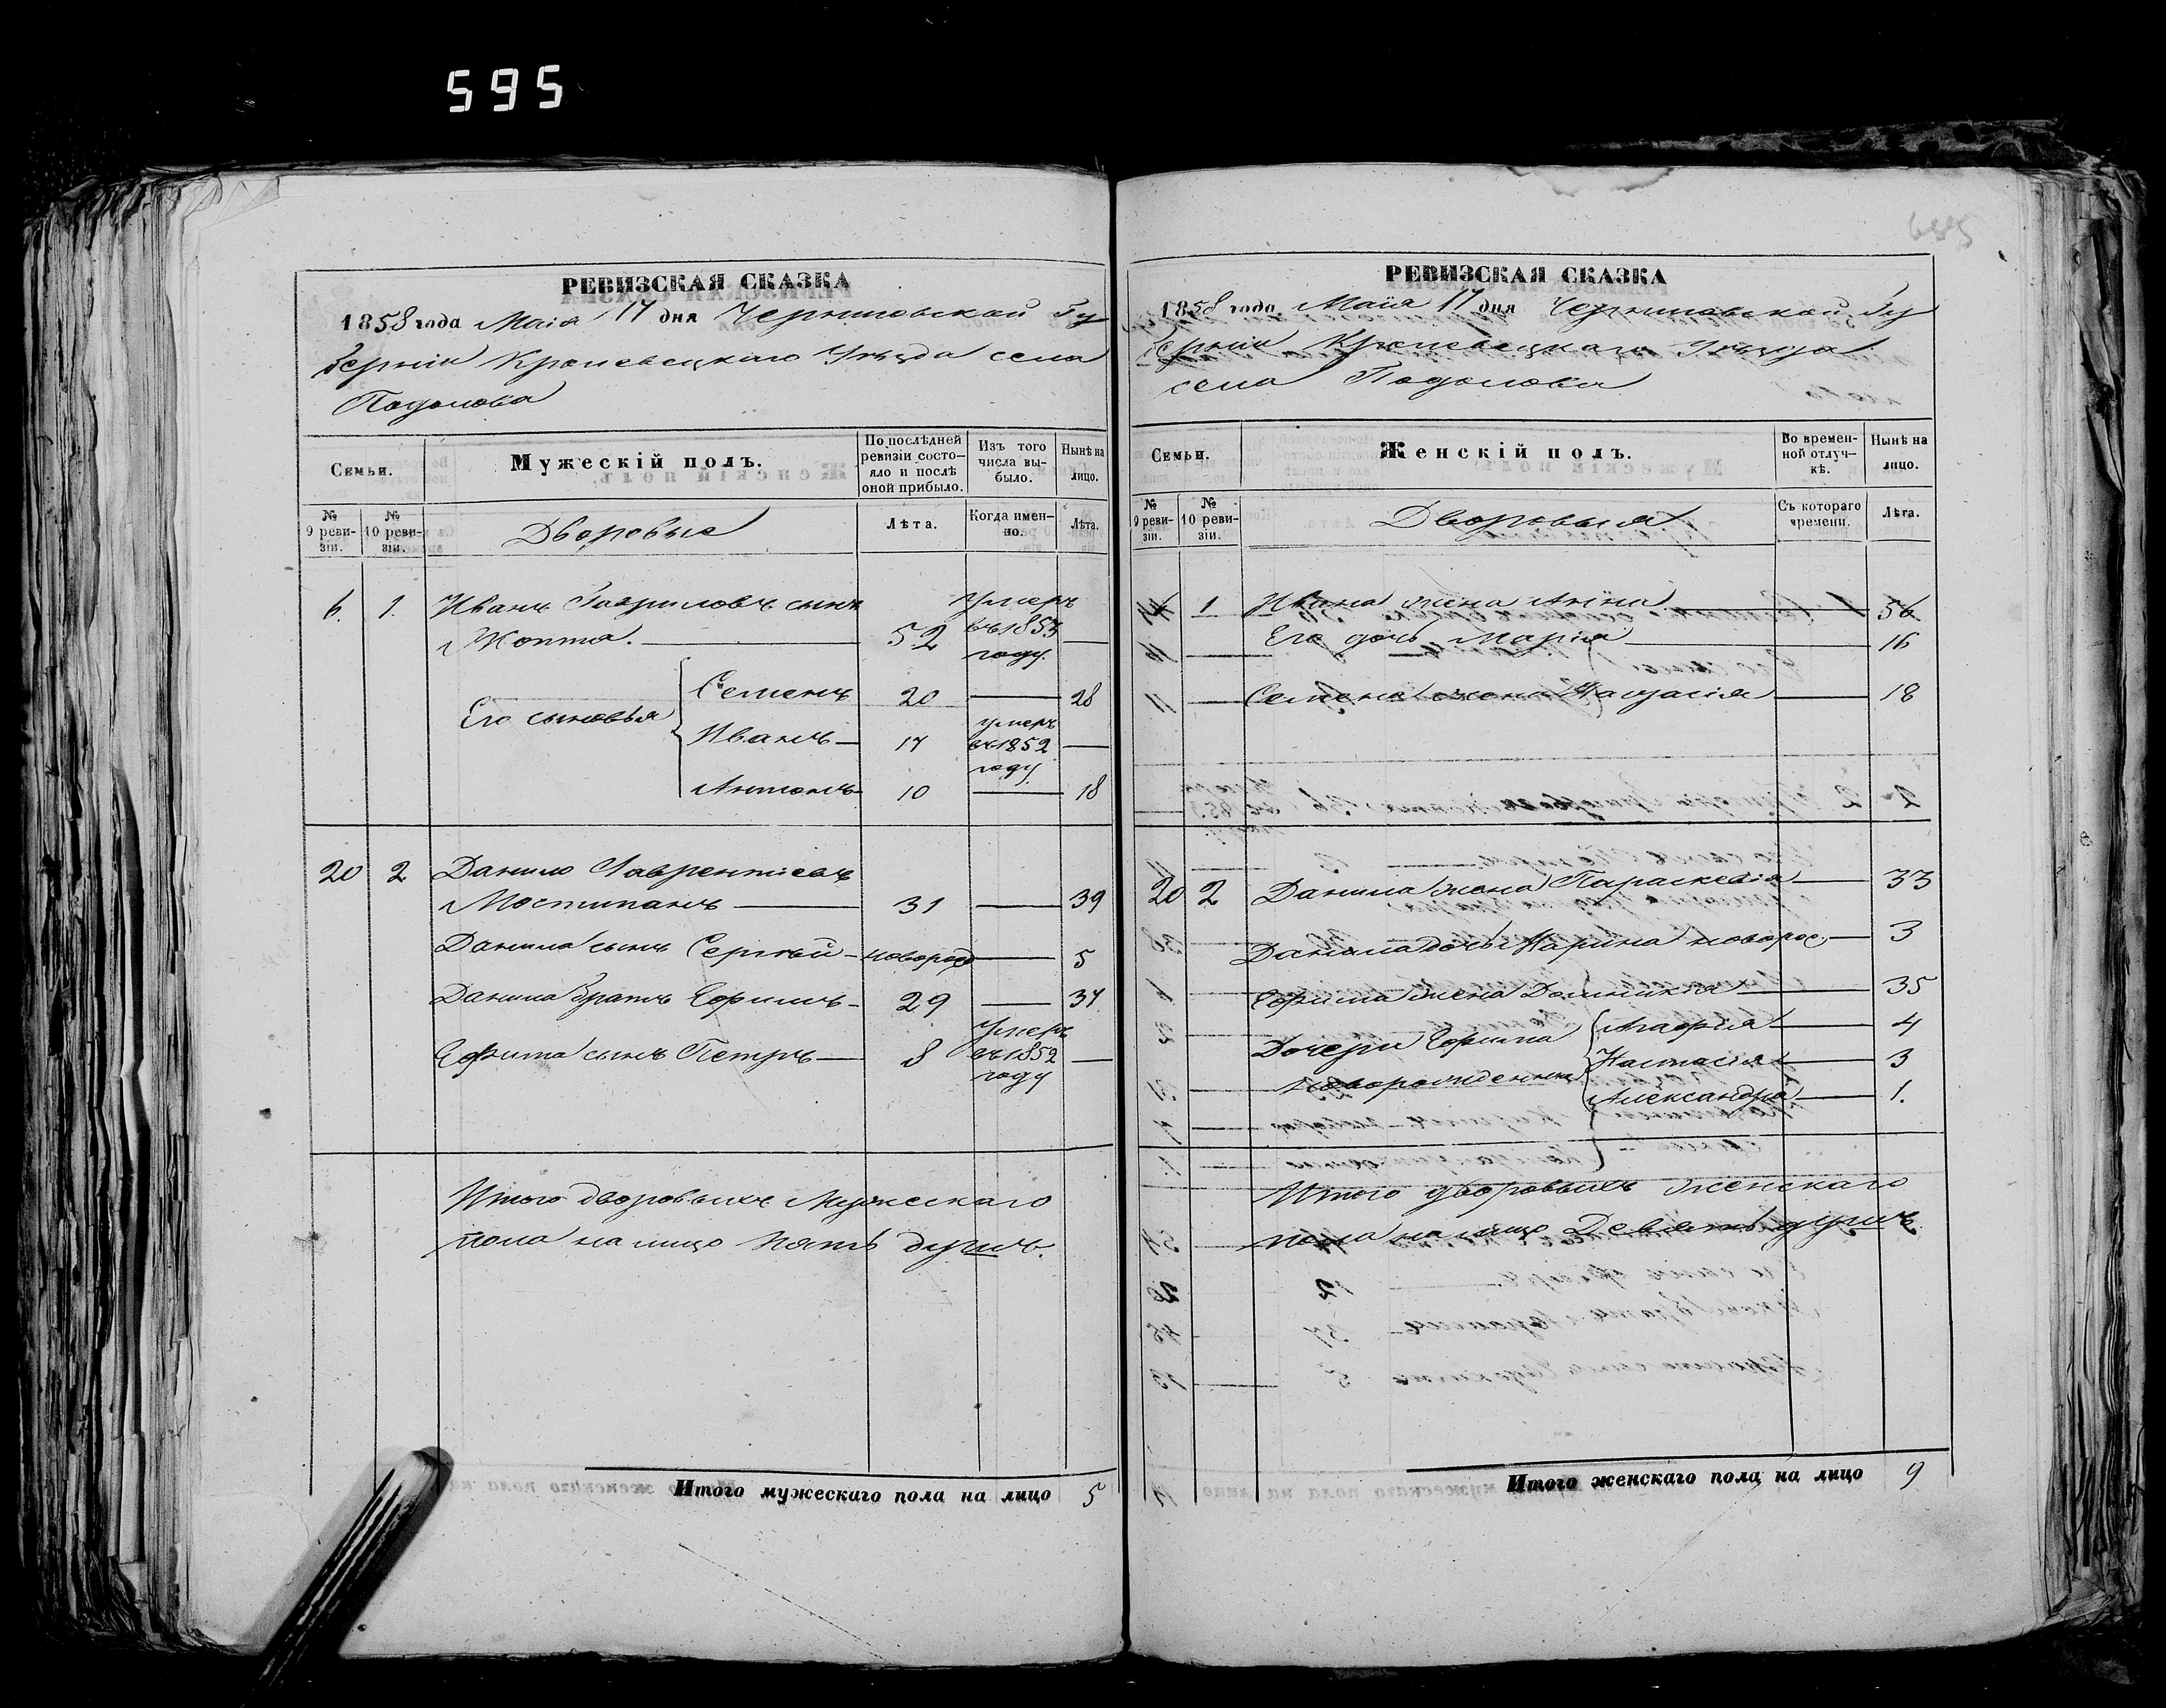 595
РЕВИЗСКАЯ СКАЗКА
1858 года Маія 17 дня Черниговской Гу
берніи Кролевецкаго Уѣзда села
Подолова
Семьи.
Мужескій полъ.
По послѣдней ревизіи состояло и послѣ оной прибыло.
Изъ того числа выбыло.
Нынѣ на лицо.
№ 9 ревизіи.
№ 10 ревизіи.
Дворовые
Лѣта.
Когда именно.
Лѣта.
6. 1. Иванъ Гавриловъ сынъ умеръ
Жопта. 52 въ 1853
году.
Его сыновья Семенъ 20 28
Иванъ 17 умеръ въ 1852 году
Антонъ 10 18
20 2 Данило Лаврентіевъ
Мостипанъ 31 39
Данила сынъ Сергѣй новорож 5
Данила братъ Ефимъ 29 37
Ефима сынъ Петръ 8 умеръ въ 1852 году
Итого дворовыхъ Мужескаго
пола на лицо пять душъ.
Итого мужескаго пола на лицо 5
РЕВИЗСКАЯ СКАЗКА
1858 года Маія 17 дня Черниговской Гу
берніи Кролевецкаго Уѣзда
села Подолова
Семьи.
Женскій полъ.
Во временной отлучкѣ.
Нынѣ на лицо.
№ 9 ревизіи.
№ 10 ревизіи.
Дворовыя
Съ котораго времени.
Лѣта.
1 Ивана жена Анна 56
Его дочь Марія 16
Семена жена Настасія 18
20 2 Данила жена Параскевія 33
Данила дочь Марина новорос. 3
Ефима жена Домникія 35
Дочери Ефима Агафія 4
новорожденные Настасія 3
Александра 1.
Итого дворовыхъ женскаго
пола на лицо Девять душъ
Итого женскаго пола на лицо 9